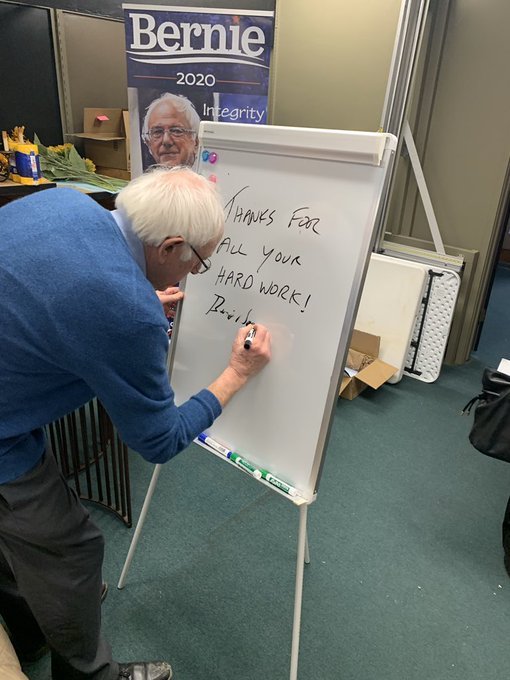 Bernie
2020
Integrity
THANKS FOR
ALL YOUR
HARD WORK!